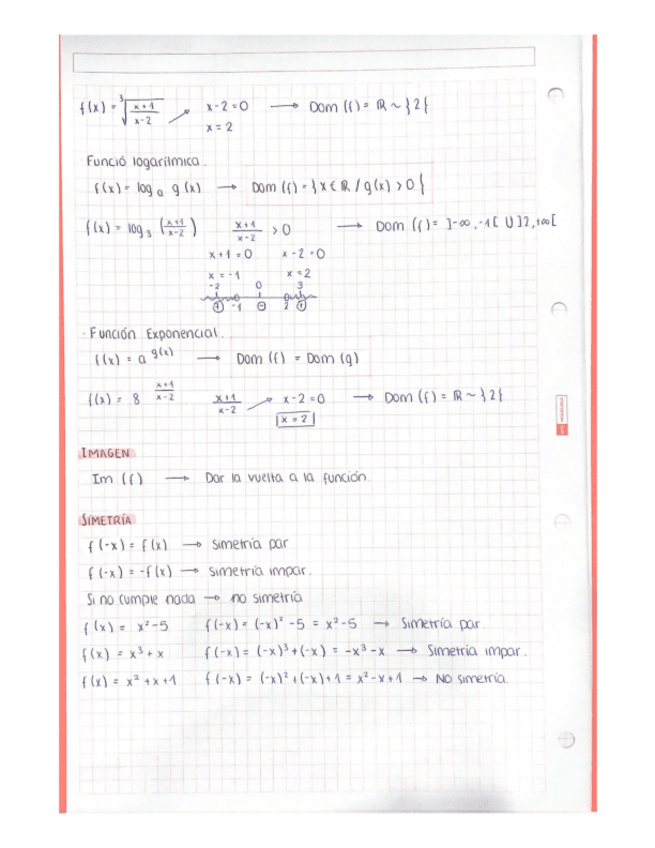 f(x) = ∛((x+1)/(x-2)) ↗ x-2=0 → Dom (f) = ℝ ~ }2{
x = 2
· Funció logarítmica.
f(x) = log_a g(x) → Dom (f) = {x ∈ ℝ / g(x) > 0}
f(x) = log_3 ((x+1)/(x-2)) (x+1)/(x-2) > 0 → Dom (f) = ]-∞, -1[ U ]2, +∞[
x+1 = 0 x-2 = 0
x = -1 x = 2
-2 0 3
⊕ -1 ⊖ 2 ⊕
· Función Exponencial.
f(x) = a^g(x) → Dom (f) = Dom (g)
f(x) = 8^((x+1)/(x-2)) (x+1)/(x-2) ↗ x-2=0 → Dom (f) = ℝ ~ }2{
x = 2
IMAGEN
Im (f) → Dar la vuelta a la función
SIMETRÍA
f(-x) = f(x) → simetría par
f(-x) = -f(x) → simetría impar.
Si no cumple nada → no simetría
f(x) = x²-5 f(-x) = (-x)² -5 = x²-5 → Simetría par.
f(x) = x³+x f(-x) = (-x)³+(-x) = -x³-x → Simetría impar.
f(x) = x²+x+1 f(-x) = (-x)²+(-x)+1 = x²-x+1 → No simetría.